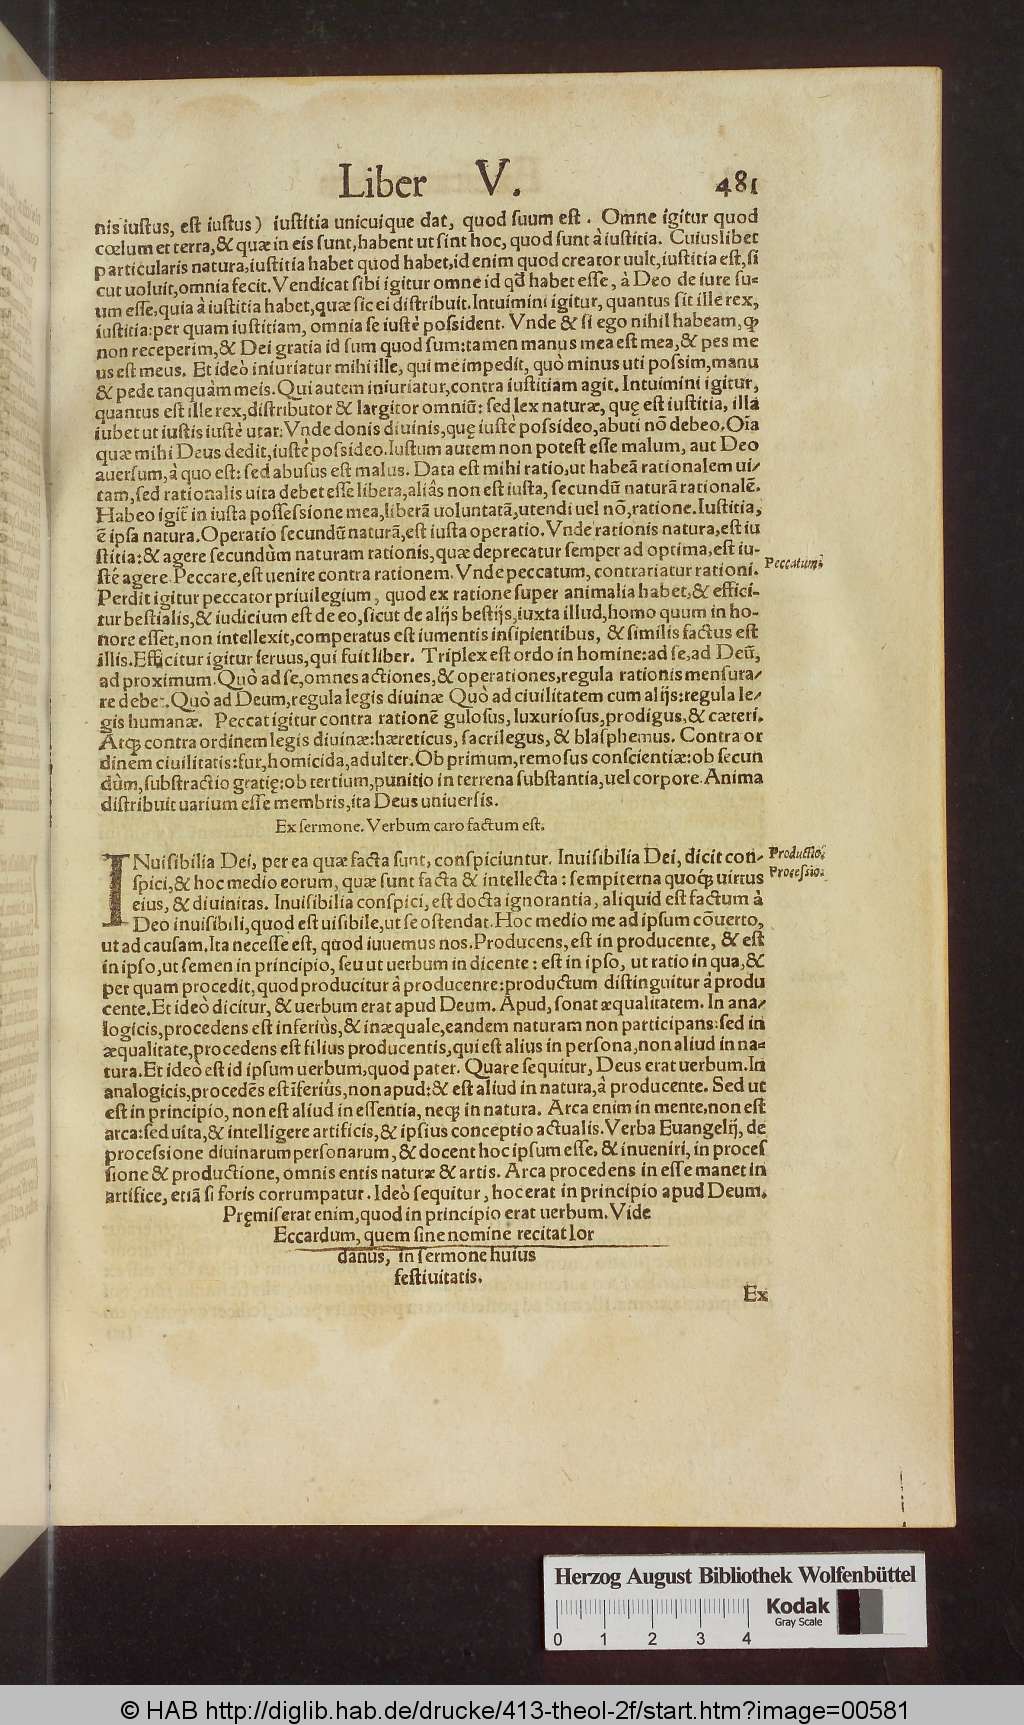 Liber V. 481
nis iustus, est iustus) iustitia unicuique dat, quod suum est. Omne igitur quod
cœlum et terra, & quæ in eis sunt, habent ut sint hoc, quod sunt à iustitia. Cuiuslibet
particularis natura, iustitia habet quod habet, id enim quod creator uult, iustitia est, si
cut uoluit, omnia fecit. Vendicat sibi igitur omne id qđ habet esse, à Deo de iure su=
um esse, quia à iustitia habet, quæ sic ei distribuit. Intuimini igitur, quantus sit ille rex,
iustitia: per quam iustitiam, omnia se iustè possident. Vnde & si ego nihil habeam, ꝙ
non receperim, & Dei gratia id sum quod sum: tamen manus mea est mea, & pes me
us est meus. Et ideò iniuriatur mihi ille, qui me impedit, quò minus uti possim, manu
& pede tanquàm meis. Qui autem iniuriatur, contra iustitiam agit. Intuimini igitur,
quantus est ille rex, distributor & largitor omniũ: sed lex naturæ, quę est iustitia, illa
iubet ut iustis iustè utar: Vnde donis diuinis, quę iustè possideo, abuti nõ debeo. Oĩa
quæ mihi Deus dedit, iustè possideo. Iustum autem non potest esse malum, aut Deo
auersum, à quo est: sed abusus est malus. Data est mihi ratio, ut habeã rationalem ui-
tam, sed rationalis uita debet esse libera, aliâs non est iusta, secundũ naturã rationalẽ.
Habeo igit̃ in iusta possessione mea, liberã uoluntatã, utendi uel nõ, ratione. Iustitia,
ẽ ipsa natura. Operatio secundũ naturã, est iusta operatio. Vnde rationis natura, est iu
stitia: & agere secundùm naturam rationis, quæ deprecatur semper ad optima, est iu-
stè agere. Peccare, est uenire contra rationem. Vnde peccatum, contrariatur rationi. Peccatum.
Perdit igitur peccator priuilegium, quod ex ratione super animalia habet, & effici-
tur bestialis, & iudicium est de eo, sicut de alijs bestijs, iuxta illud, homo quum in ho-
nore esset, non intellexit, comperatus est iumentis insipientibus, & similis factus est
illis. Efficitur igitur seruus, qui fuit liber. Triplex est ordo in homine: ad se, ad Deũ,
ad proximum. Quò ad se, omnes actiones, & operationes, regula rationis mensura-
re debet. Quò ad Deum, regula legis diuinæ Quò ad ciuilitatem cum alijs: regula le-
gis humanæ. Peccat igitur contra rationẽ gulosus, luxuriosus, prodigus, & cæteri.
Atq; contra ordinem legis diuinæ: hæreticus, sacrilegus, & blasphemus. Contra or
dinem ciuilitatis: fur, homicida, adulter. Ob primum, remosus conscientiæ: ob secun
dùm, substractio gratię: ob tertium, punitio in terrena substantia, uel corpore. Anima
distribuit uarium esse membris, ita Deus uniuersis.
Ex sermone. Verbum caro factum est.
INuisibilia Dei, per ea quæ facta sunt, conspiciuntur. Inuisibilia Dei, dicit con- Productio.
spici, & hoc medio eorum, quæ sunt facta & intellecta: sempiterna quoq; uirtus Processio.
eius, & diuinitas. Inuisibilia conspici, est docta ignorantia, aliquid est factum à
Deo inuisibili, quod est uisibile, ut se ostendat. Hoc medio me ad ipsum cõuerto,
ut ad causam. Ita necesse est, quòd iuuemus nos. Producens, est in producente, & est
in ipso, ut semen in principio, seu ut uerbum in dicente: est in ipso, ut ratio in qua, &
per quam procedit, quod producitur à producente: productum distinguitur à produ
cente. Et ideò dicitur, & uerbum erat apud Deum. Apud, sonat æqualitatem. In ana-
logicis, procedens est inferiùs, & inæquale, eandem naturam non participans: sed in
æqualitate, procedens est filius producentis, qui est alius in persona, non aliud in na=
tura. Et ideò est id ipsum uerbum, quod pater. Quare sequitur, Deus erat uerbum. In
analogicis, procedẽs est ĩferiùs, non apud: & est aliud in natura, à producente. Sed ut
est in principio, non est aliud in essentia, neq; in natura. Arca enim in mente, non est
arca: sed uita, & intelligere artificis, & ipsius conceptio actualis. Verba Euangelij, de
processione diuinarum personarum, & docent hoc ipsum esse, & inueniri, in proces
sione & productione, omnis entis naturæ & artis. Arca procedens in esse manet in
artifice, etiã si foris corrumpatur. Ideò sequitur, hoc erat in principio apud Deum.
Pręmiserat enim, quod in principio erat uerbum. Vide
Eccardum, quem sine nomine recitat Ior
danus, in sermone huius
festiuitatis.
Ex
Herzog August Bibliothek Wolfenbüttel
Kodak
Gray Scale
0 1 2 3 4
© HAB http://diglib.hab.de/drucke/413-theol-2f/start.htm?image=00581